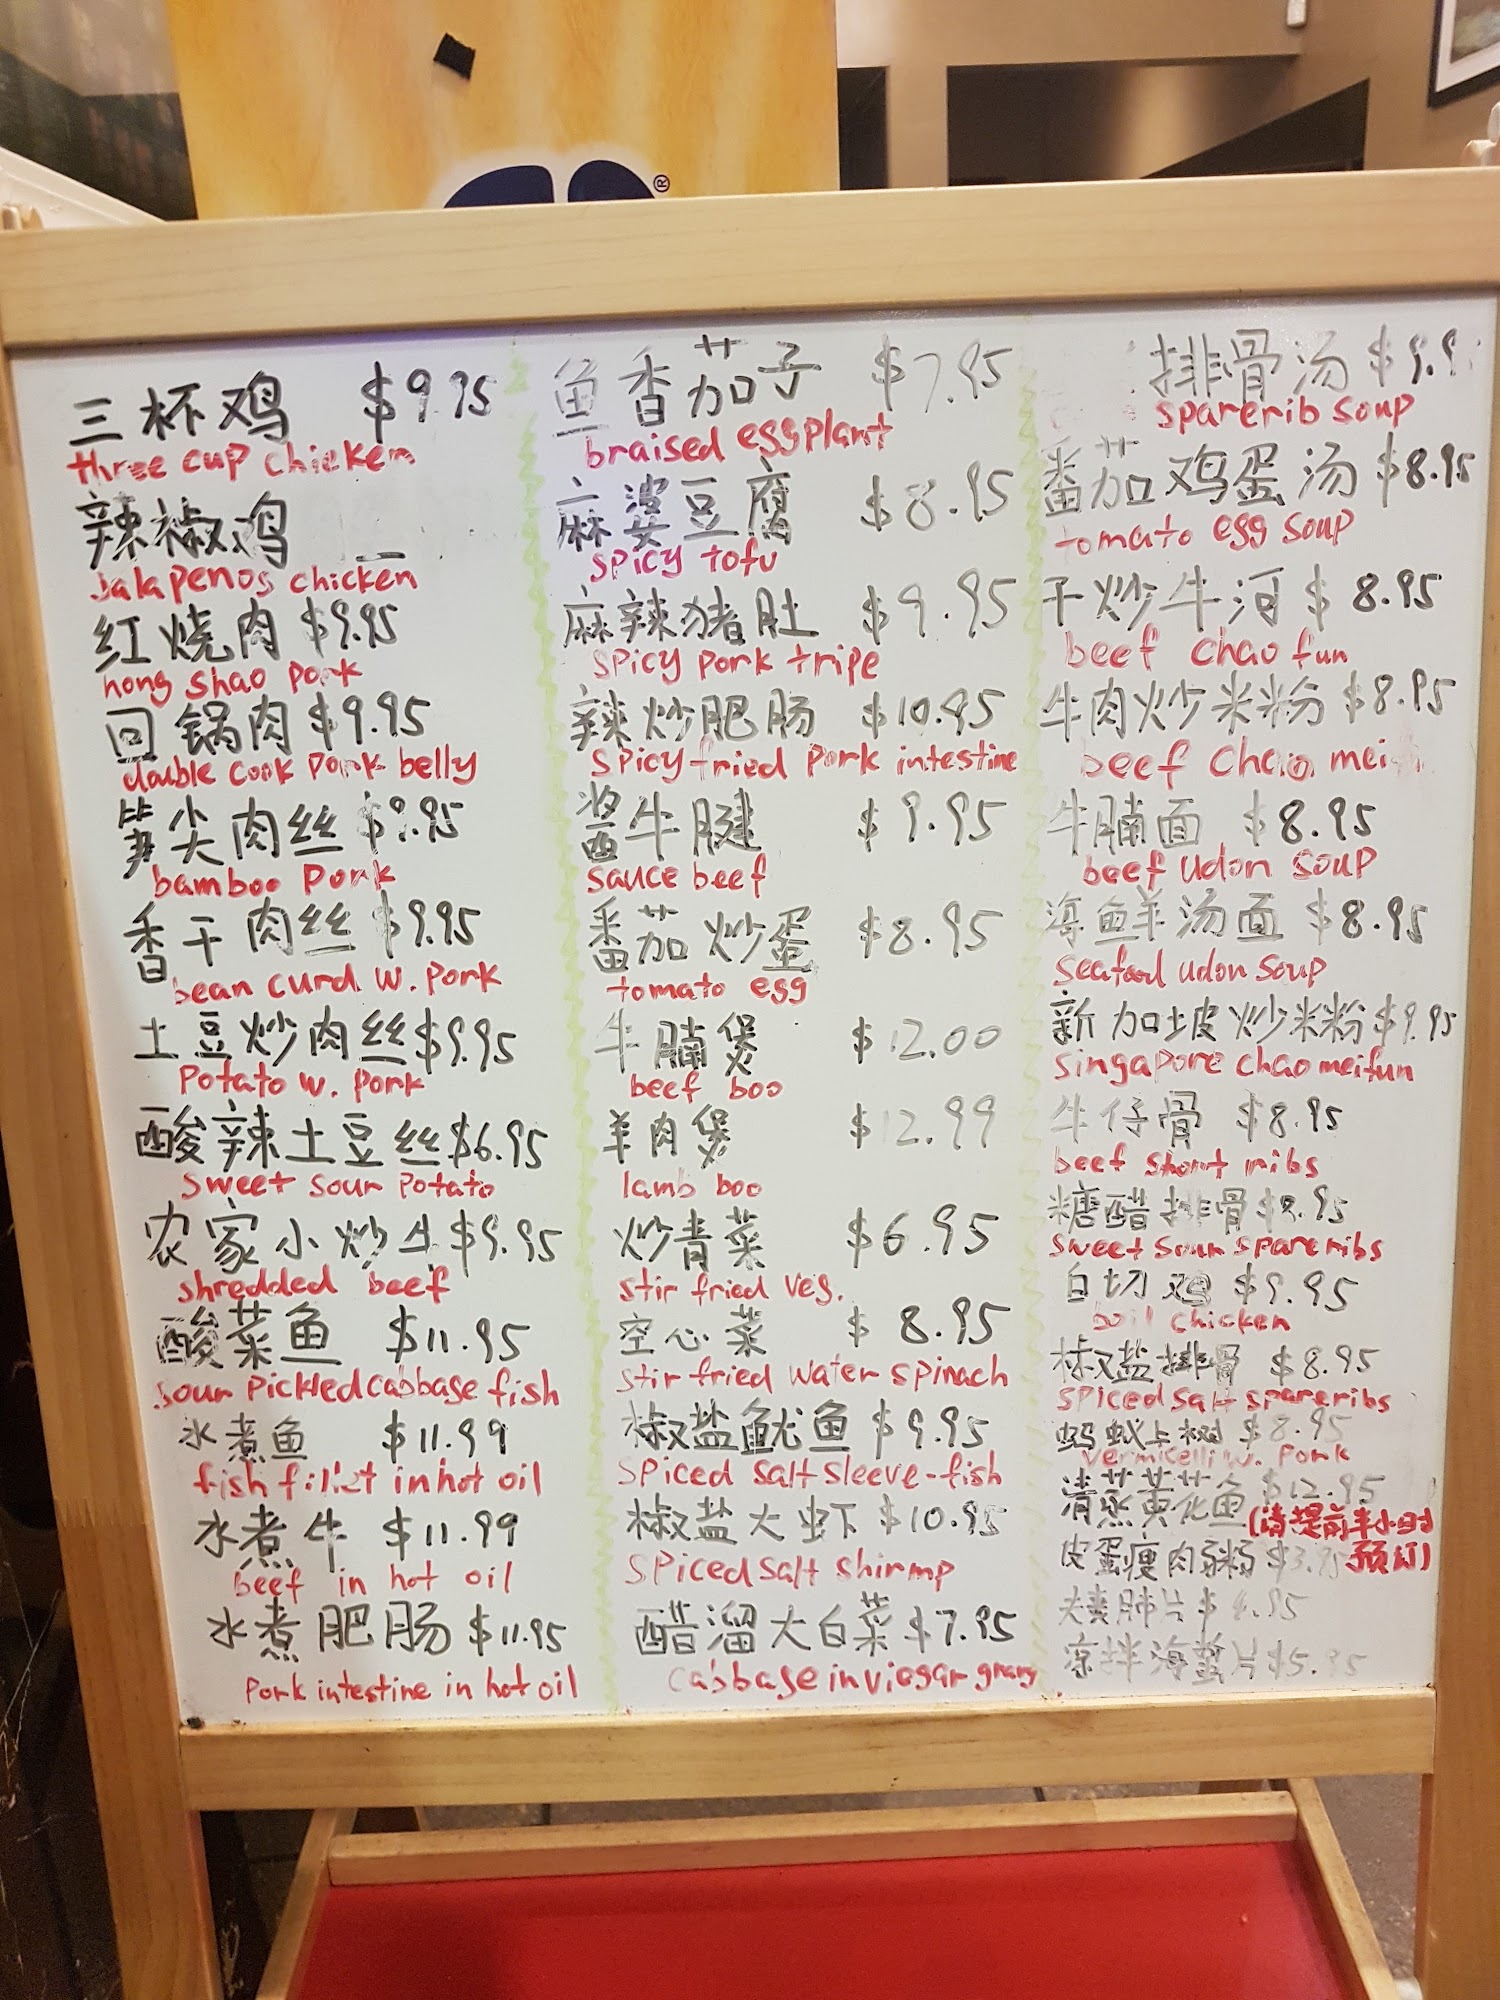 三杯鸡 $9.95
three cup chicken
辣椒鸡
Jalapenos chicken
红烧肉 $9.95
hong shao pork
回锅肉 $9.95
double cook pork belly
笋尖肉丝 $9.95
bamboo pork
香干肉丝 $9.95
bean curd w. pork
土豆炒肉丝 $9.95
potato w. pork
酸辣土豆丝 $6.95
sweet sour potato
农家小炒牛 $9.95
shredded beef
酸菜鱼 $11.95
sour pickled cabbage fish
水煮鱼 $11.99
fish fillet in hot oil
水煮牛 $11.99
beef in hot oil
水煮肥肠 $11.95
pork intestine in hot oil
鱼香茄子 $7.95
braised eggplant
麻婆豆腐 $8.95
spicy tofu
麻辣猪肚 $9.95
spicy pork tripe
辣炒肥肠 $10.95
spicy fried pork intestine
酱牛腱 $9.95
sauce beef
番茄炒蛋 $8.95
tomato egg
牛腩煲 $12.00
beef boo
羊肉煲 $12.99
lamb boo
炒青菜 $6.95
stir fried veg.
空心菜 $8.95
stir fried water spinach
椒盐鱿鱼 $9.95
spiced salt sleeve-fish
椒盐大虾 $10.95
spiced salt shirmp
醋溜大白菜 $7.95
cabbage in viegar
排骨汤
sparerib soup
番茄鸡蛋汤 $8.95
tomato egg soup
干炒牛河 $8.95
beef chao fun
牛肉炒米粉 $8.95
beef chao mei
牛腩面 $8.95
beef udon soup
海鲜汤面 $8.95
seafood udon soup
新加坡炒米粉 $9.95
singapore chao meifun
牛仔骨 $8.95
beef short ribs
糖醋排骨 $8.95
sweet sour spareribs
白切鸡 $9.95
boil chicken
椒盐排骨 $8.95
spiced salt spareribs
蚂蚁上树 $8.95
vermicelli w. pork
清蒸黄花鱼 $12.95
(请提前半小时
皮蛋瘦肉粥 预订)
夫妻肺片
凉拌海蜇片